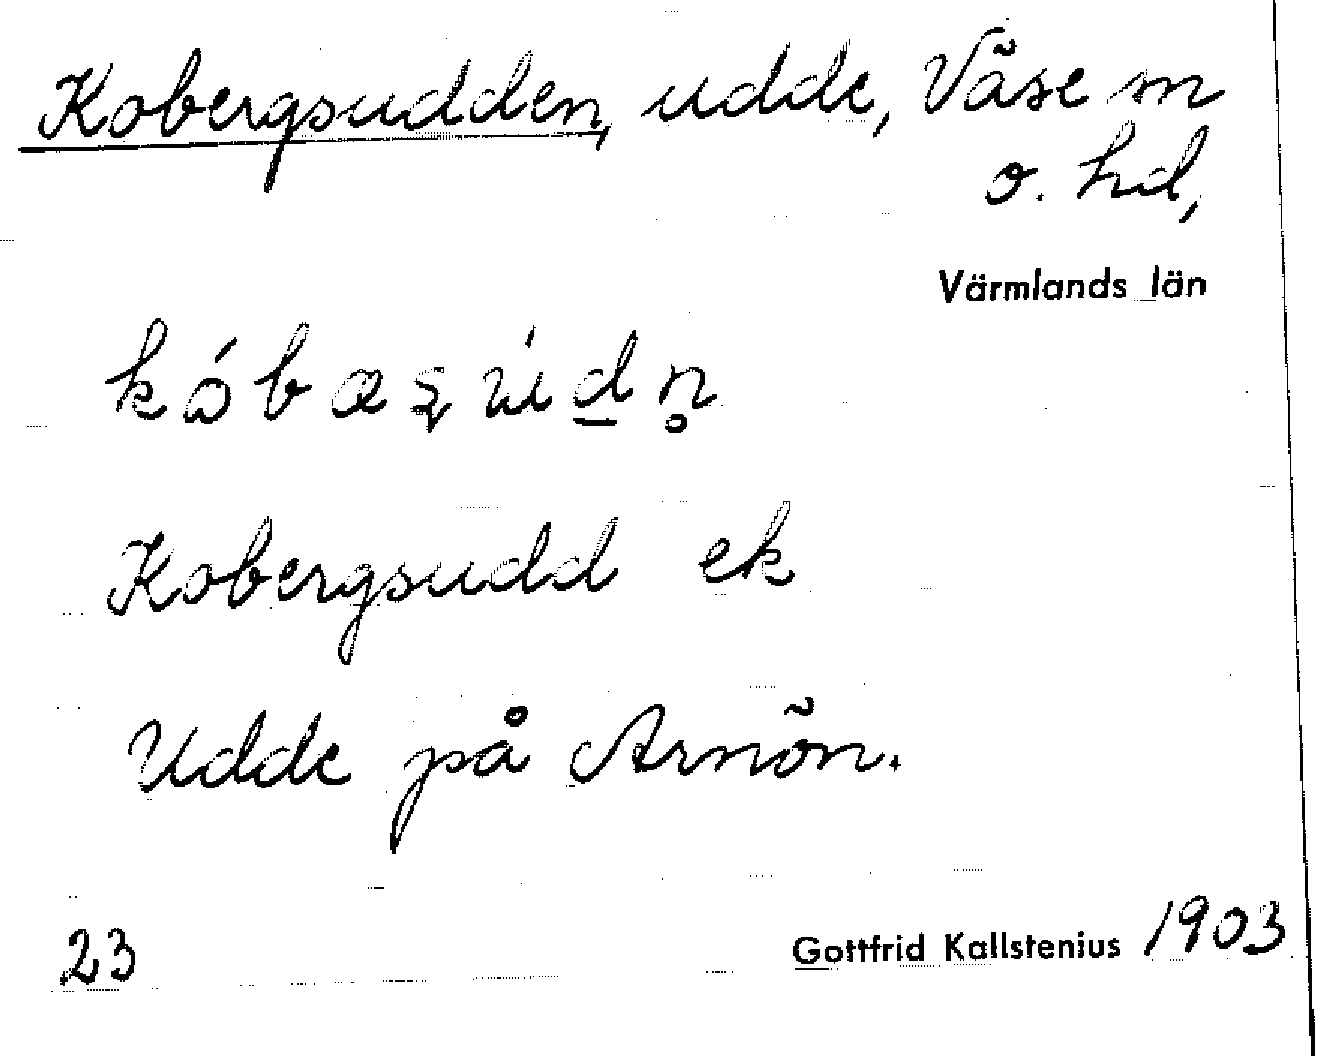 Kobergsudden, udde, Väse sn
o. hd,
Värmlands län
Kobergsudd ek
Udde på Arnön.
23 Gottfrid Kallstenius 1903